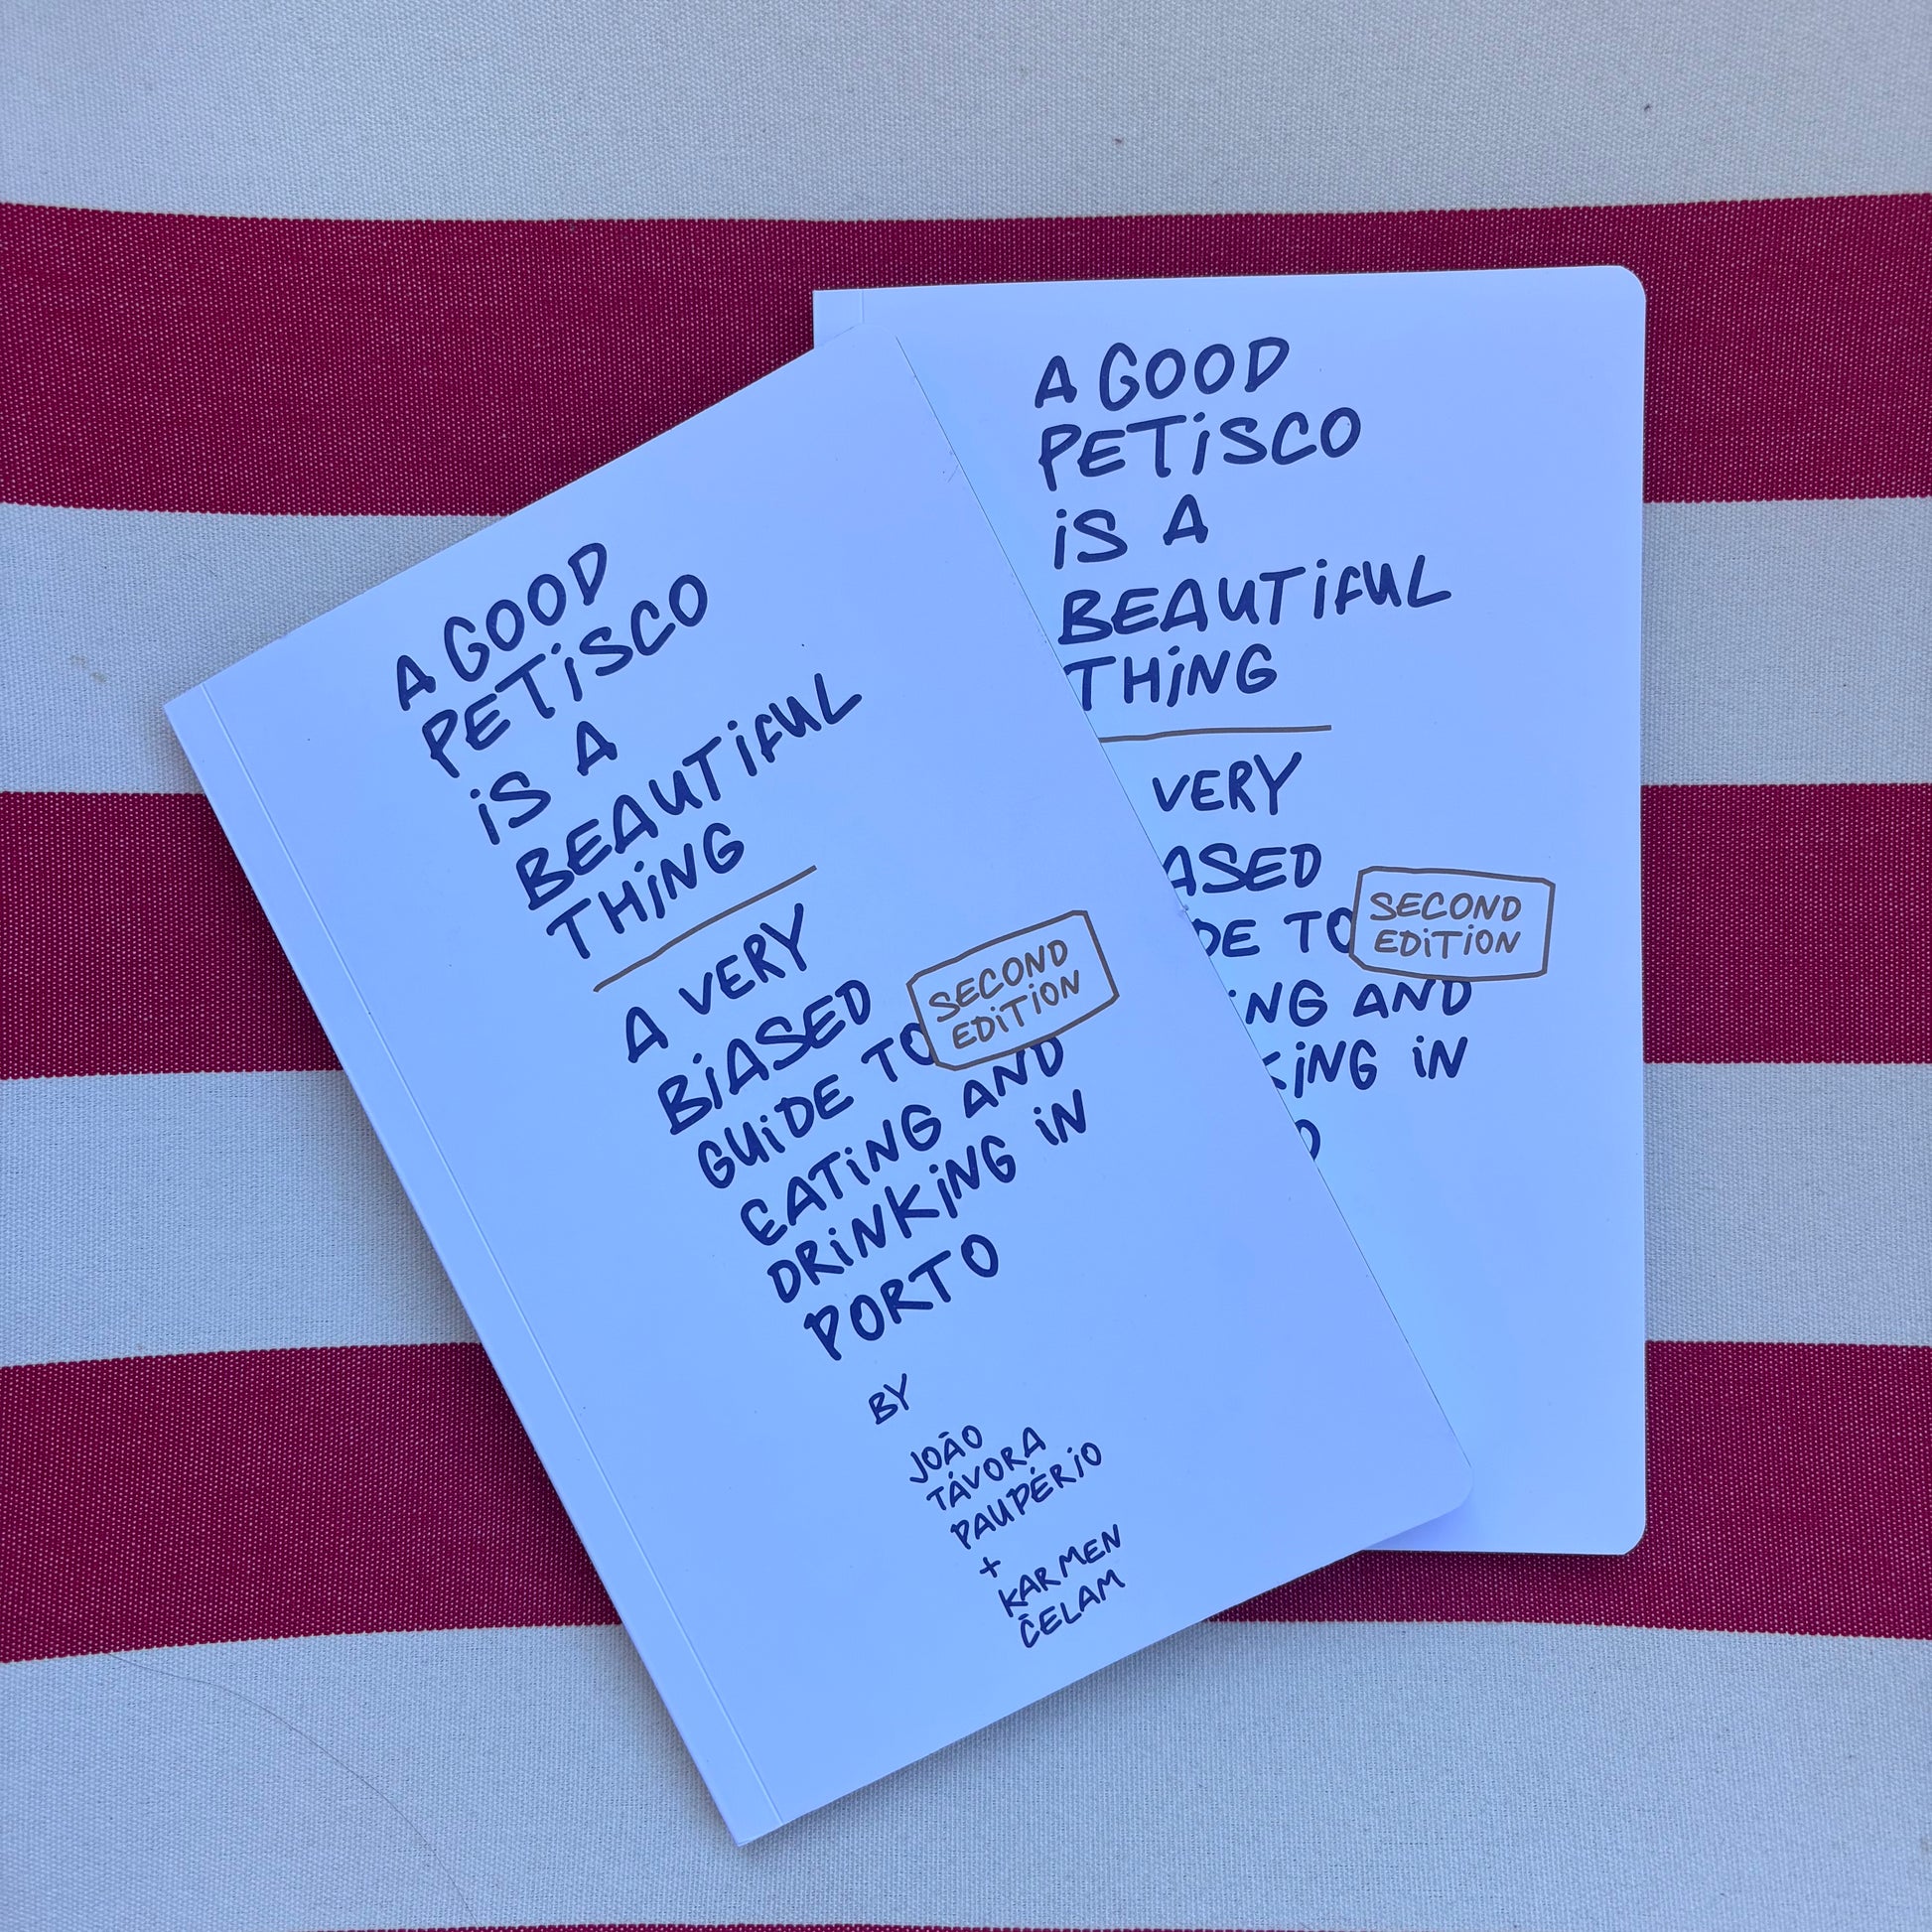 A GOOD
PETISCO
IS A
BEAUTIFUL
THING
A VERY
BIASED
GUIDE TO
SECOND
EDITION
EATING AND
DRINKING IN
PORTO
BY
JOÃO
TÁVORA
PAUPÉRIO
+
KARMEN
ČELAM
A GOOD
PETISCO
IS A
BEAUTIFUL
THING
VERY
ASED
DE TO
SECOND
EDITION
ING AND
KING IN
O